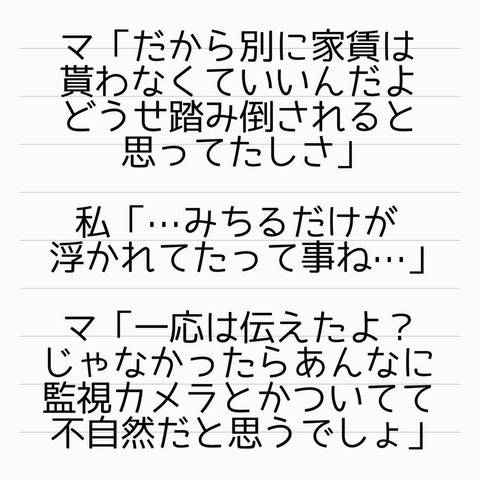 マ「だから別に家賃は
貰わなくていいんだよ
どうせ踏み倒されると
思ってたしさ」
私「…みちるだけが
浮かれてたって事ね…」
マ「一応は伝えたよ？
じゃなかったらあんなに
監視カメラとかついてて
不自然だと思うでしょ」